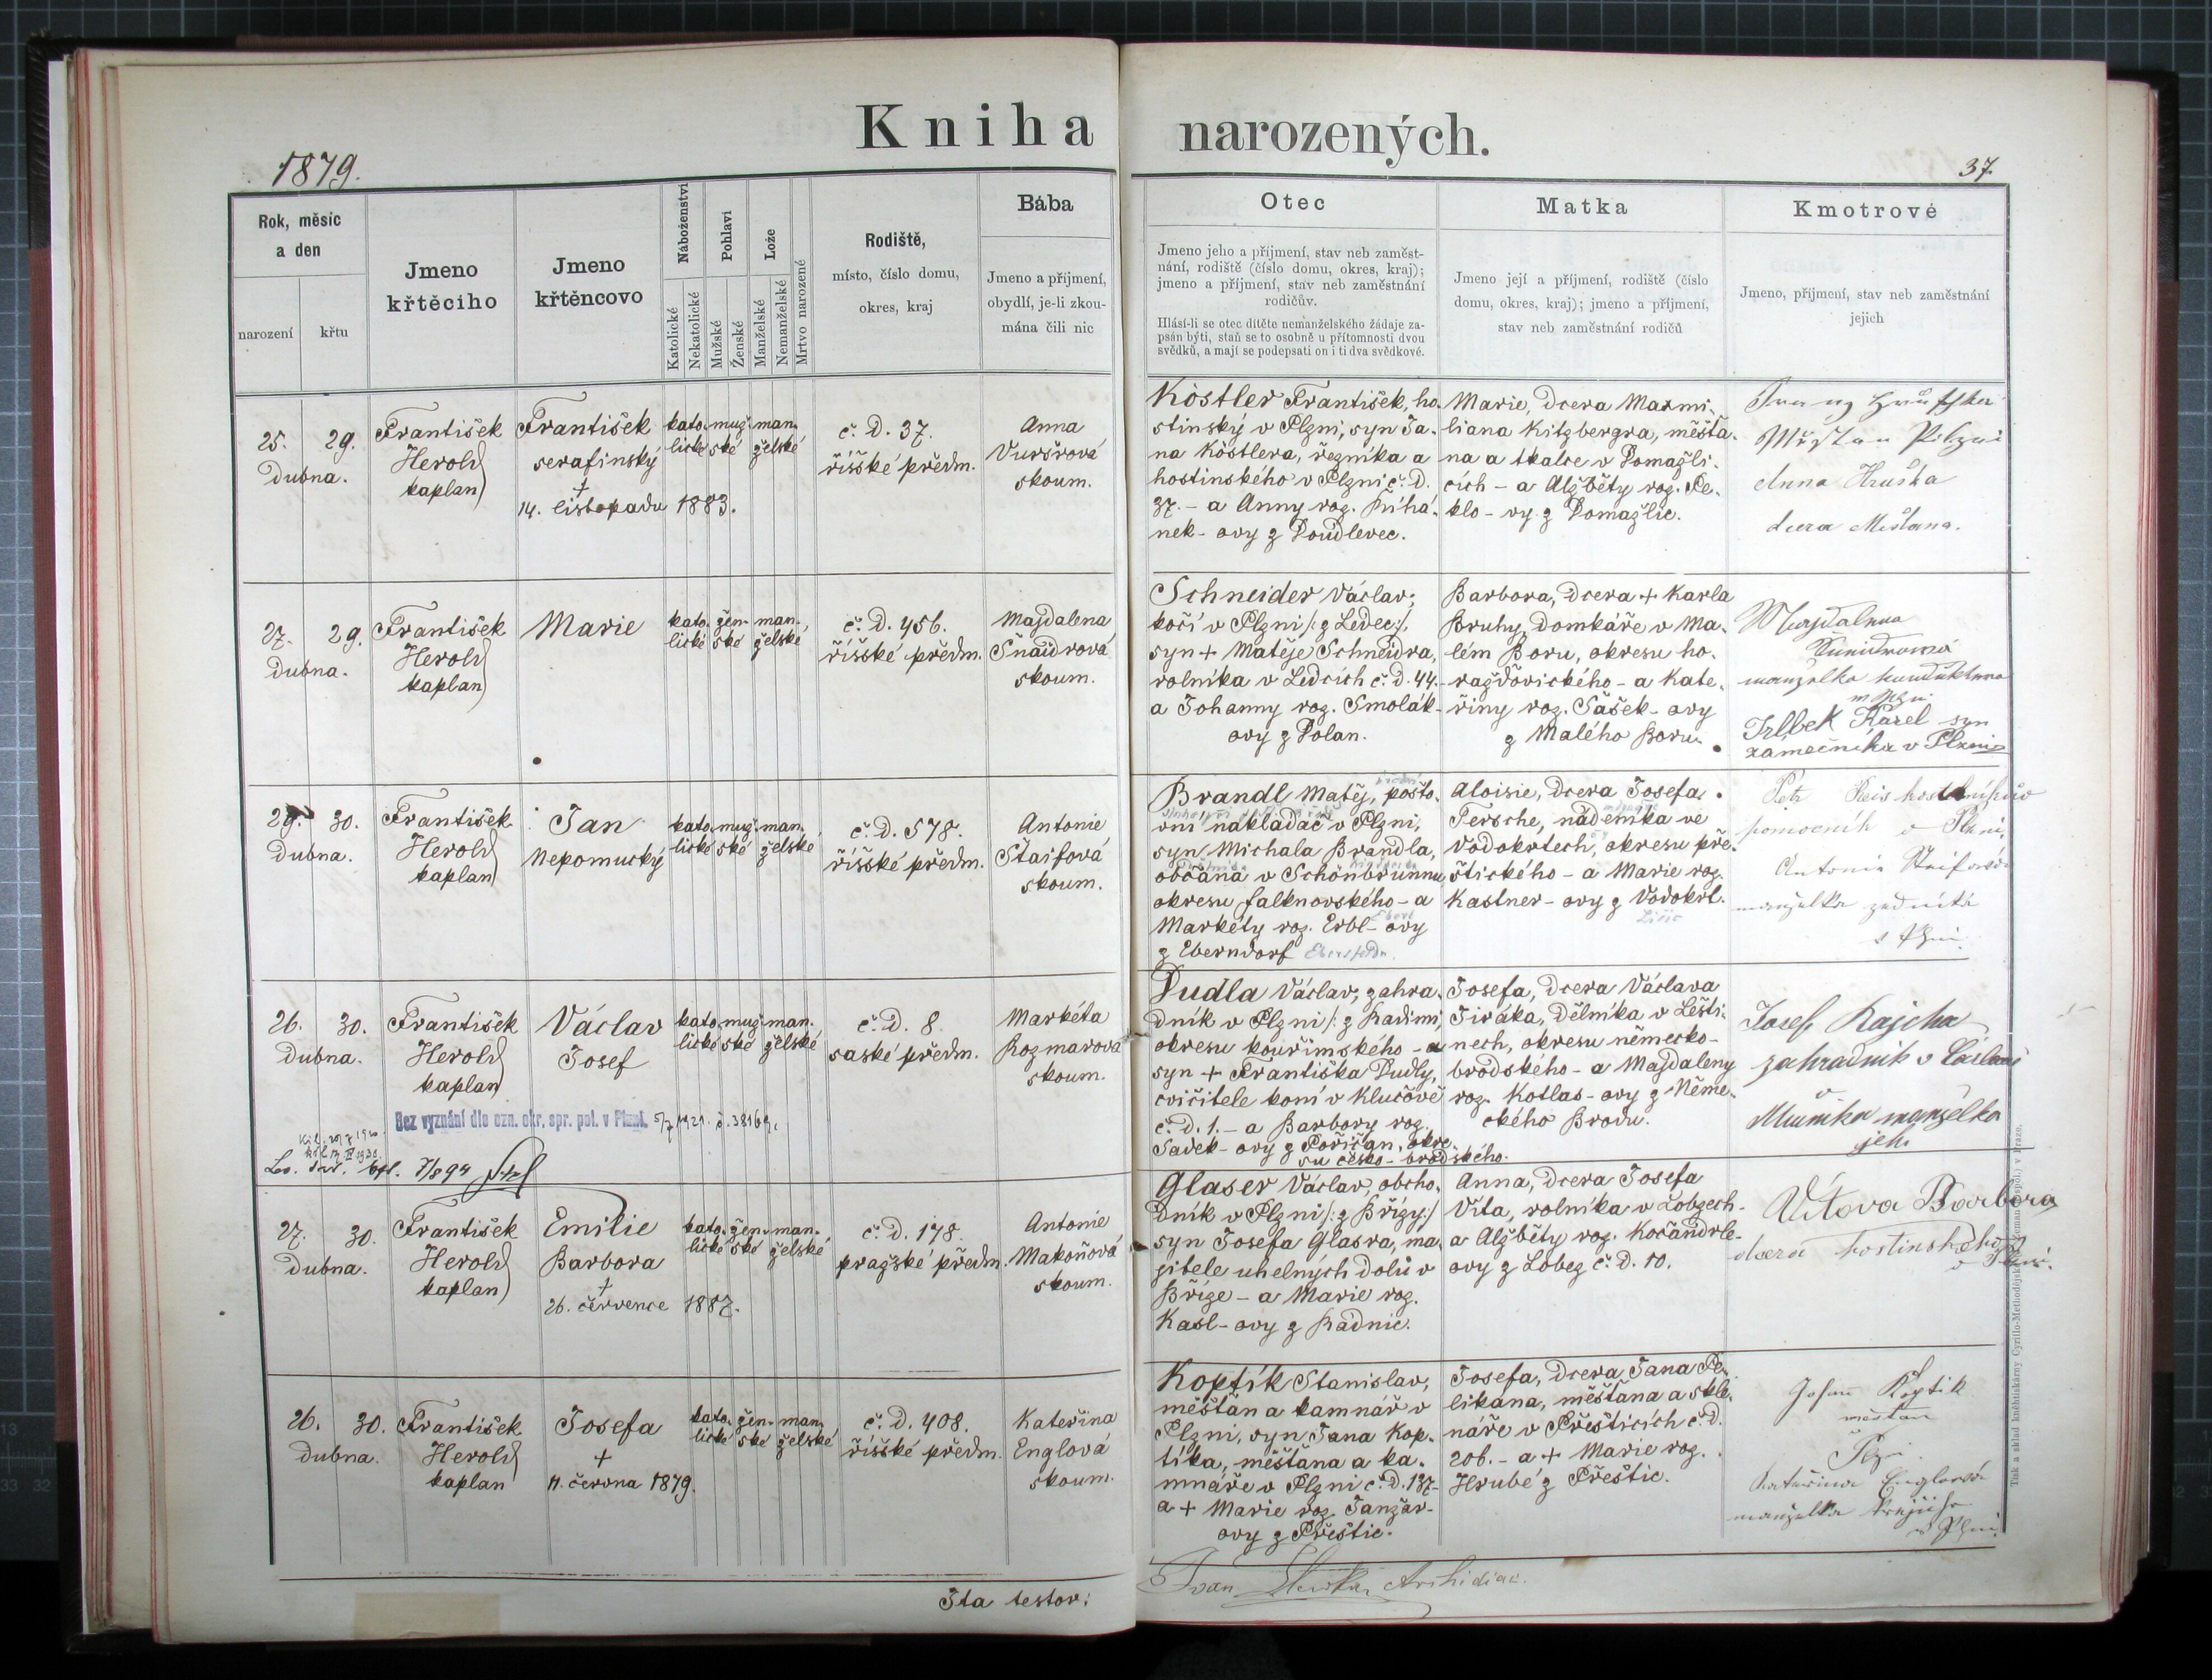 Kniha narozených.
1879.
37.
Rok, měsíc
a den
narození
křtu
Jmeno
křtěcího
Jmeno
křtěncovo
Náboženství
Katolické
Nekatolické
Pohlaví
Mužské
Ženské
Lože
Manželské
Nemanželské
Mrtvo narozené
Rodiště,
místo, číslo domu,
okres, kraj
Bába
Jmeno a příjmení,
obydlí, je-li zkou-
mána čili nic
Otec
Jmeno jeho a příjmení, stav neb zaměst-
nání, rodiště (číslo domu, okres, kraj);
jmeno a příjmení, stav neb zaměstnání
rodičův.
Hlásí-li se otec dítěte nemanželského žádaje za-
psán býti, staň se to osobně u přítomnosti dvou
svědků, a mají se podepsati on i ti dva svědkové.
Matka
Jmeno její a příjmení, rodiště (číslo
domu, okres, kraj); jmeno a příjmení,
stav neb zaměstnání rodičů
Kmotrové
Jmeno, příjmení, stav neb zaměstnání
jejich
25. 29.
Dubna.
František
Herold
kaplan
František
serafinský
†
14. listopadu 1883.
kato- muž- man-
lické ské želské
č. D. 37.
říšské předm.
Anna
Vuršrová
skoum.
Köstler František, ho-
stinský v Plzni, syn Ja-
na Köstlera, řezníka a
hostinského v Plzni č. D.
37. - a Anny roz. Řihá-
nek - ovy z Doudlevec.
Marie, dcera Maxmi-
liana Kitzbergra, měšťa-
na a tkalce v Domažli-
cích - a Alžběty roz. Pe-
klo - vy z Domažlic.
Anna Hruška
dcera Měšťana.
27. 29.
Dubna.
František
Herold
kaplan
Marie
kato- žen- man-
lické ské želské
č. D. 456.
říšské předm.
Magdalena
Šnaidrová
skoum.
Schneider Václav,
kočí v Plzni /: z Ledec :/,
syn + Matěje Schneidra,
rolníka v Ledcích č. D. 44.-
a Johanny roz. Smolák-
ovy z Dolan.
Barbora, dcera + Karla
Bruhy, domkáře v Ma-
lém Boru, okresu ho-
ražďovického - a Kate-
řiny roz. Šašek - ovy
z Malého Boru.
Magdalena
manželka
Irlbek Karel syn
zámečníka v Plzni
29. 30.
Dubna.
František
Herold
kaplan
Jan
Nepomucký
kato- muž- man-
lické ské želské
č. D. 578.
říšské předm.
Antonie
Štaifová
skoum.
Brandl Matěj, pošto-
vní nakladač v Plzni,
syn Michala Brandla,
občana v Schönbrunnu
okresu falknovského - a
Markéty roz. Erbl - ovy
z Eberndorf
Aloisie, dcera Josefa
Tersche, nádeníka ve
Vodokrtech, okresu pře-
štického - a Marie roz.
Kastner - ovy z Vodokrt.
Petr
pomocník v Plzni,
Antonie
manželka zedníka
v Plzni
26. 30.
Dubna.
František
Herold
kaplan
Václav
Josef
kato- muž- man-
lické ské želské
č. D. 8.
saské předm.
Markéta
Rozmarová
skoum.
Bez vyznání dle ozn. okr. spr. pol. v Plzni. 5/7 1921. č. 38169.
Dudla Václav, zahra-
dník v Plzni /: z Radimi,
okresu kouřimského - a
syn + Františka Dudly,
cvičitele koní v Klučově
č. D. 1. - a Barbory roz.
Sadek - ovy z Poříčan, okre-
su česko - brodského.
Josefa, dcera Václava
Jiráka, dělníka v Lešti-
nech, okresu německo-
brodského - a Magdaleny
roz. Kotlas - ovy z Něme-
ckého Brodu.
Josef Rajcha
zahradník v Čáslavi
manželka
jeho
27. 30.
Dubna.
František
Herold
kaplan
Emilie
Barbora
†
26. července 1887.
kato- žen- man-
lické ské želské
č. D. 178.
pražské předm.
Antonie
Makoňová
skoum.
Glaser Václav, obcho-
dník v Plzni /: z Břízy :/
syn Josefa Glasra, ma-
jitele uhelných dolů v
Bříze - a Marie roz.
Kasl - ovy z Radnic.
Anna, dcera Josefa
Víta, rolníka v Lobzech-
a Alžběty roz. Kočandrle-
ovy z Lobez č. D. 10.
Vítova Barbora
dcera hostinského
v Plzni.
26. 30.
Dubna.
František
Herold
kaplan
Josefa
†
11. června 1879.
kato- žen- man-
lické ské želské
č. D. 408.
říšské předm.
Kateřina
Englová
skoum.
Koptík Stanislav,
měšťan a kamnář v
Plzni, syn Jana Kop-
tíka, měšťana a ka-
mnáře v Plzni č. D. 137-
a + Marie roz. Janžur-
ovy z Přeštic.
Josefa, dcera Jana Pe-
likána, měšťana a skle-
náře v Přešticích č. D.
206. - a + Marie roz.
Hrubé z Přeštic.
Johan Koptik
měšťan
Kateřina Englová
manželka krejčího
v Plzni
Ita testor:
Archidiac.